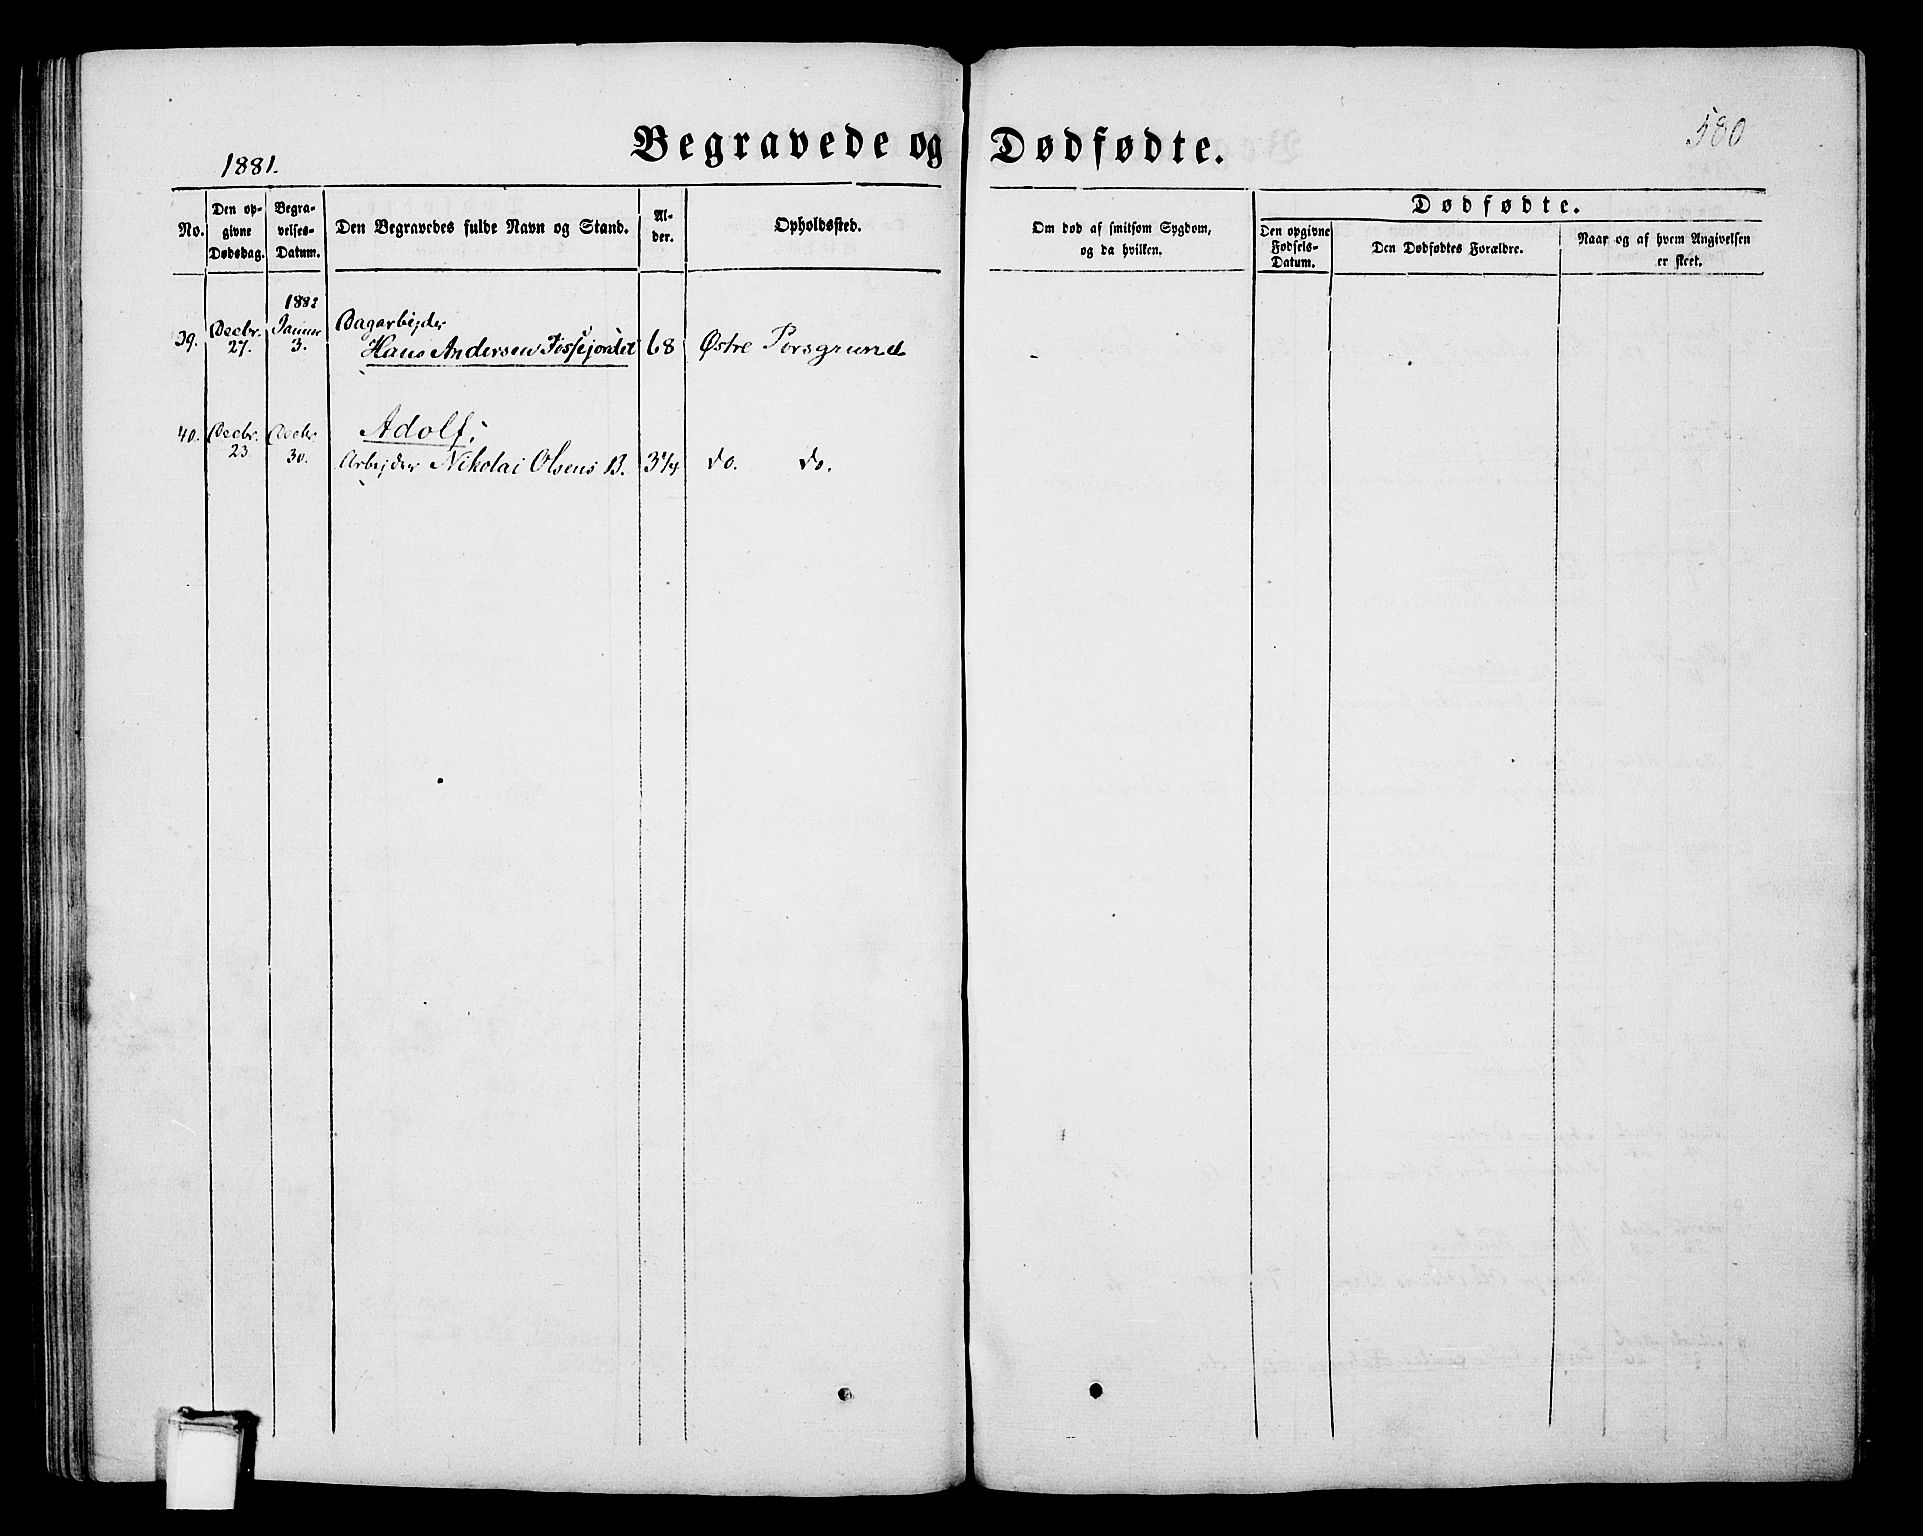 Begravede og Dødfødte.
580
1881.
No.
Den op-
givne
Dødsdag.
Begra-
velses-
Datum.
Den Begravedes fulde Navn og Stand.
Al-
der.
Opholdssted.
Om død af smitsom Sygdom,
og da hvilken.
Dødfødte.
Den opgivne
Fødsels-
Datum.
Den Dødfødtes Forældre.
Naar og af hvem Angivelsen
er skeet.
39. Decbr. 27. 1882 Januar 3. Dagarbejder
Hans Andersen 68 Østre Porsgrund
40. Decbr. 23. Decbr. 30. Adolf;
Arbejder Nikolai Olsens B. 3¼ do. do.